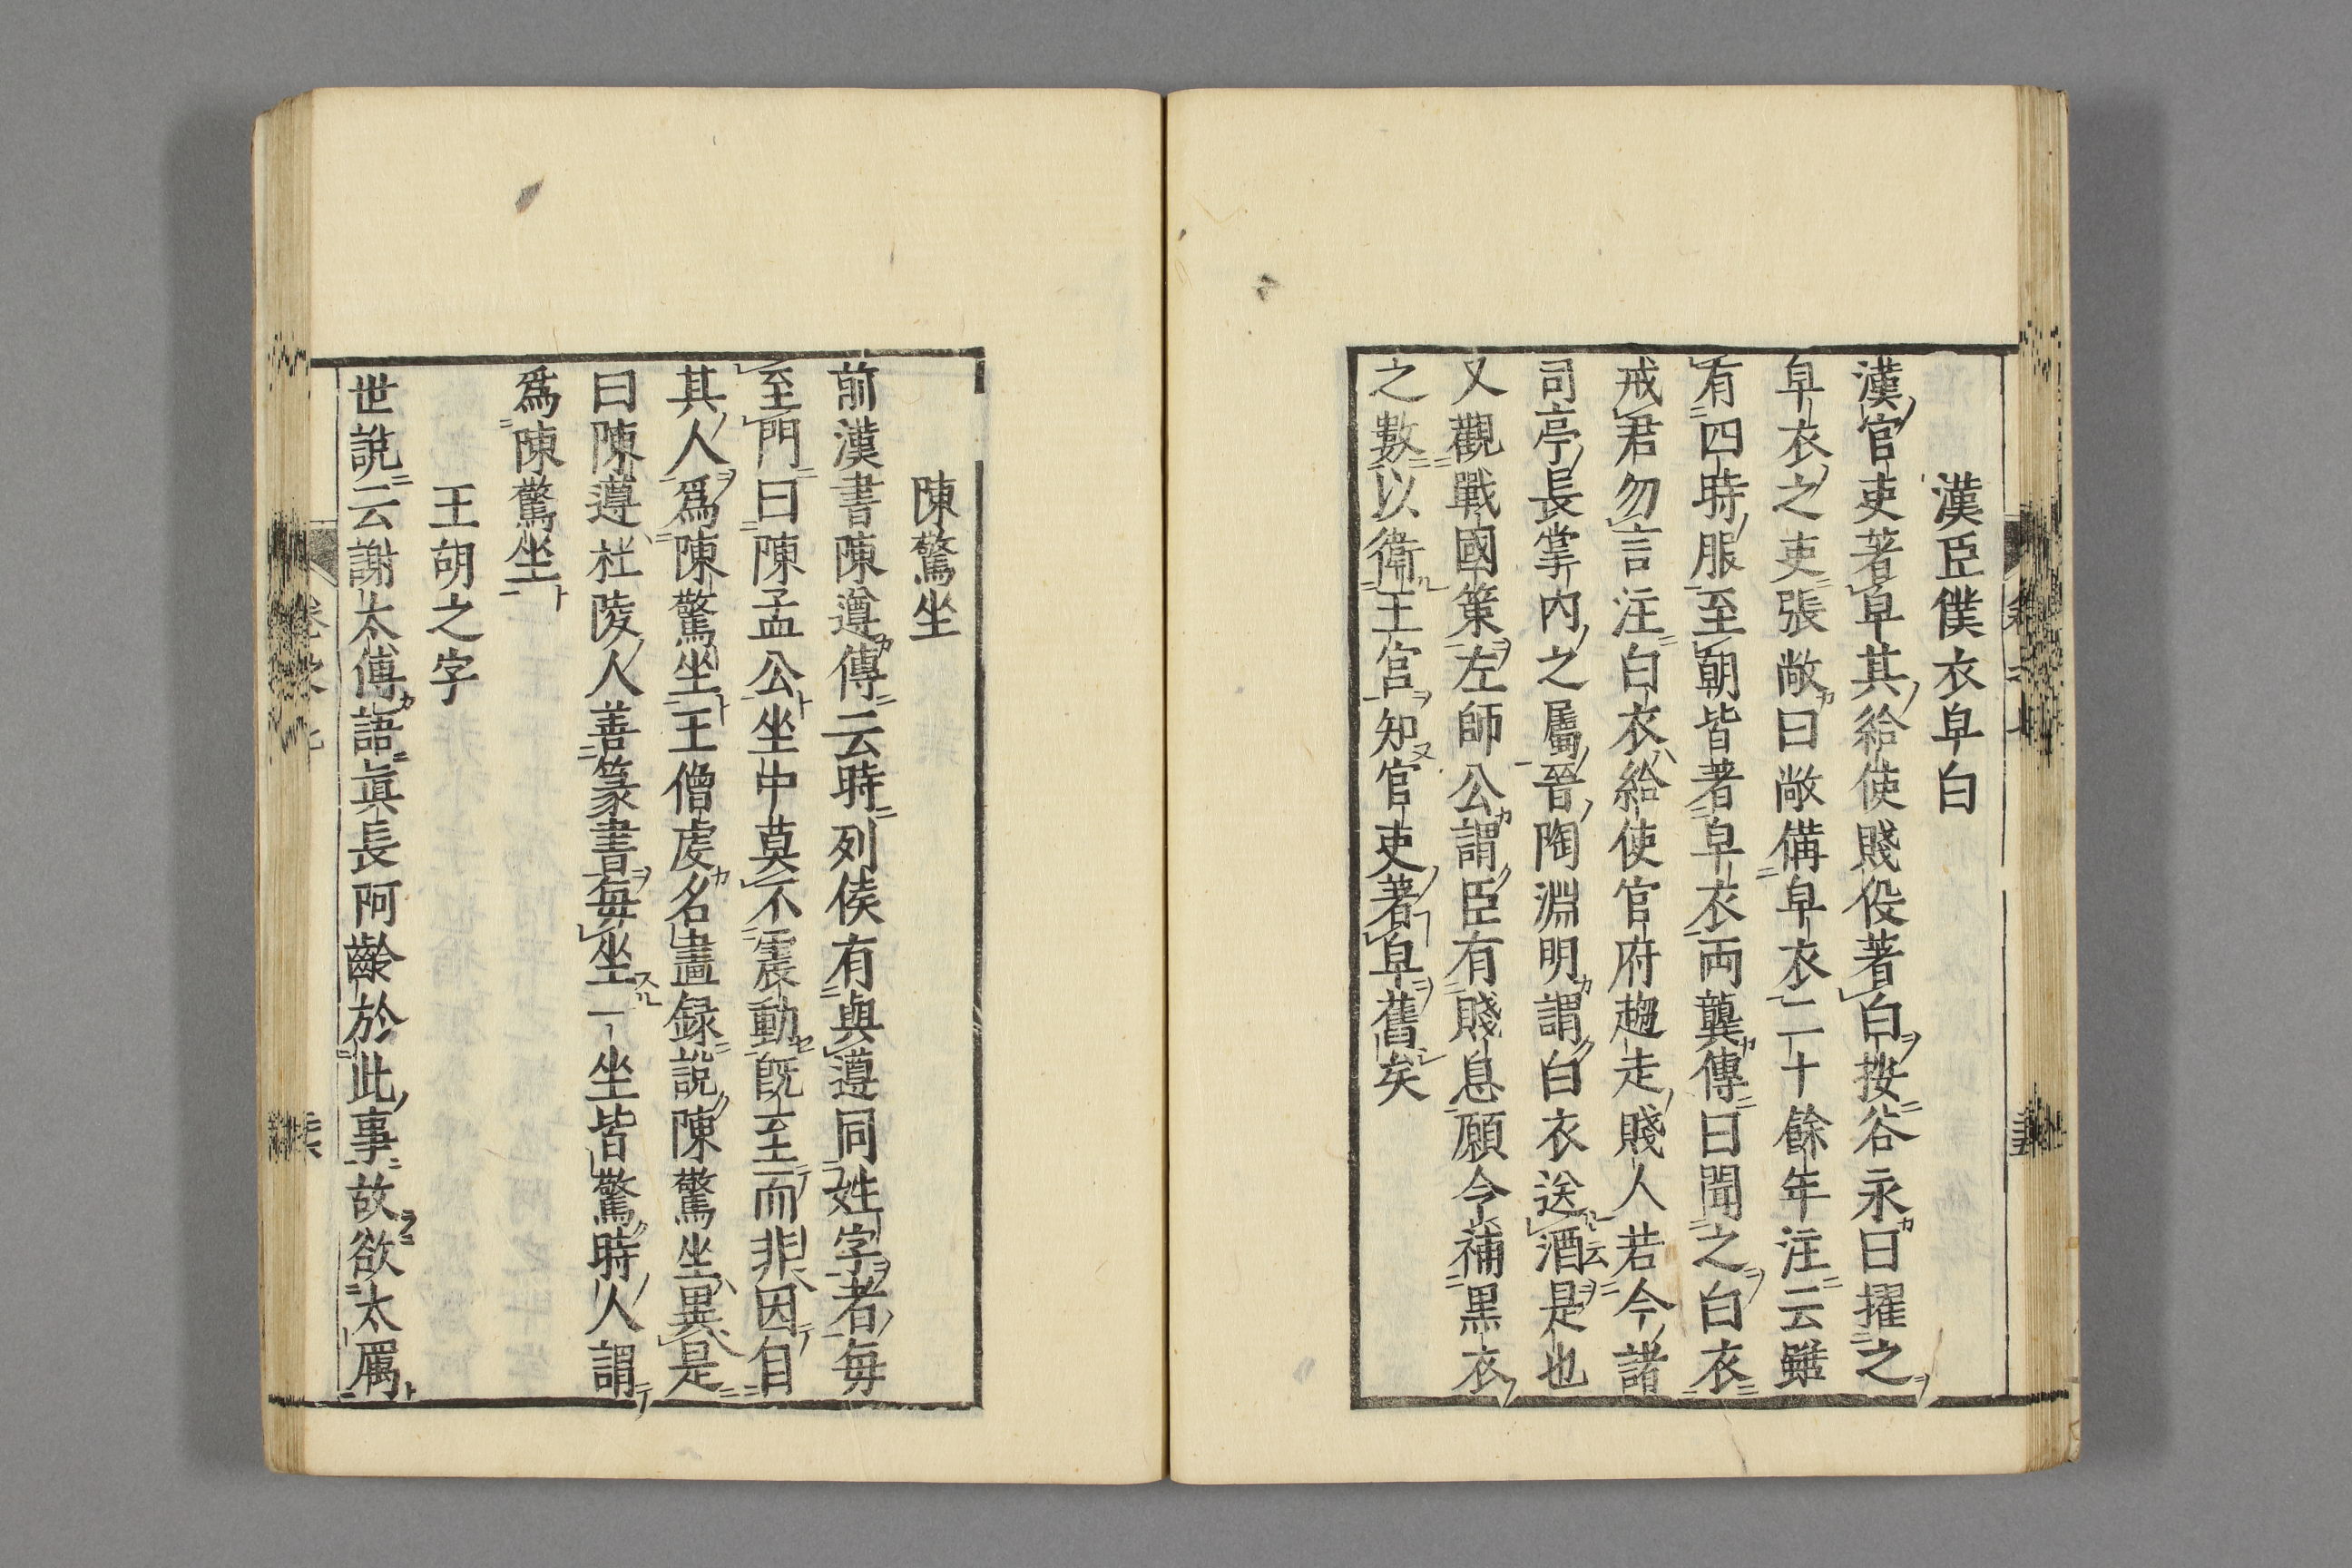 漢臣僕衣皁白
漢官吏著皁其給使賤役著白按谷永曰擢之
皁衣之吏張敞曰敞備皁衣二十餘年注云雖
有四時服至朝皆著皁衣両龔傳曰聞之白衣
戒君勿言注白衣給使官府趨走賤人若今諸
司亭長掌内之屬晉陶淵明謂白衣送酒是也
又觀戰國策左師公謂臣有賤息願令補黒衣
之數以衛王宮知官吏著皁舊矣
陳驚坐
前漢書陳遵傳云時列侯有與遵同姓字者毎
至門曰陳孟公坐中莫不震動既至而非因自
其人爲陳驚坐王僧虔名畫録説陳驚坐異是
曰陳遵杜陵人善篆書毎坐一坐皆驚時人謂
爲陳驚坐
王胡之字
世説云謝太傅語眞長阿齡於此事故欲太厲